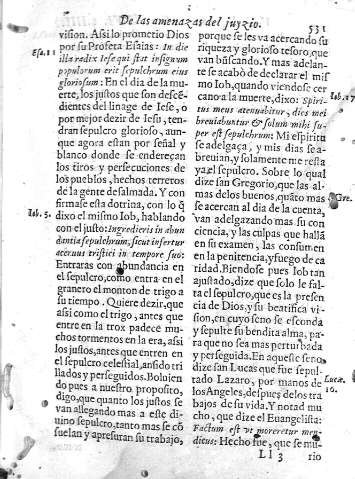 De las amenazas del juyzio.
531
vision. Assi lo prometio Dios
por su Profeta Esaias: In die
Esa. 11
illa radix Iese qui stat in signum
populorum erit sepulchrum eius
gloriosum: En el dia de la mu-
erte, los justos que son desce-
dientes del linage de Iese, o
por mejor dezir de Iesu, ten-
dran sepulcro glorioso, aun-
que agora estan por señal y
blanco donde se endereçan
los tiros y persecuciones de
los pueblos, hechos terreros
de la gente desalmada. Y con
firmase esta dotrina, con lo q̃
dixo el mismo Iob, hablando
Iob. 5.
con el justo: Ingredieris in abun
dantia sepulchrum, sicut infertur
acervus tritici in tempore suo:
Entraras con abundancia en
el sepulcro, como entra en el
granero el monton de trigo a
su tiempo. Quiere dezir, que
assi como el trigo, antes que
entre en la trox padece mu-
chos tormentos en la era, assi
los justos, antes que entren en
el sepulcro celestial, an sido tri
llados y perseguidos. Bolvien
do pues a nuestro proposito,
digo, que quanto los justos se
van allegando mas a este di-
vino sepulcro, tanto mas se cõ
suelan y apresuran su trabajo,
porque se les va acercando su
riqueza y glorioso tesoro, que
van buscando. Y mas adelan-
te se acabò de declarar el mis
mo Iob, quando viendose cer
cano a la muerte, dixo: Spiri-
Iob. 17
tus meus atenuabitur, dies mei
breviabuntur & solum mihi su-
per est sepulchrum: Mi espiritu
se adelgaça, y mis dias se a-
breuian, y solamente me resta
ya el sepulcro. Sobre lo qual
dize san Gregorio, que las al-
mas de los buenos, quãto mas
Gre.
se acercan al dia de la cuenta,
van adelgazando mas su con
ciencia, y las culpas que hallã
en su examen, las consumen
en la penitencia, y fuego de ca
ridad. Biendose pues Iob tan
ajustado, dize que solo le fal-
ta el sepulcro, que es la presen
cia de Dios, y su beatifica vi-
sion, en cuyo seno se esconda
y sepulte su bendita alma, pa-
ra que no sea mas perturbada
y perseguida. En aqueste seno
dize san Lucas que fue sepul-
tado Lazaro, por manos de
Lucæ.
16.
los Angeles, despues de los tra
bajos de su vida. Y notad mu
cho, que dize el Euangelista:
Factum est vt moreretur men-
dicus: Hecho fue, que se mu-
Ll 3
rio